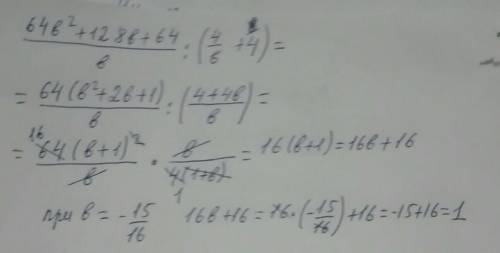 (64в²+128в+64)/в : (4/в + 4) =
= 64(в²+2в+1)/в : ((4+4в)/в) =
= 16 64(в+1)²/в · в/4(1+в) 1 = 16(в+1) = 16в+16
при в = -15/16 16в+16 = 16·(-15/16)+16 = -15+16 = 1